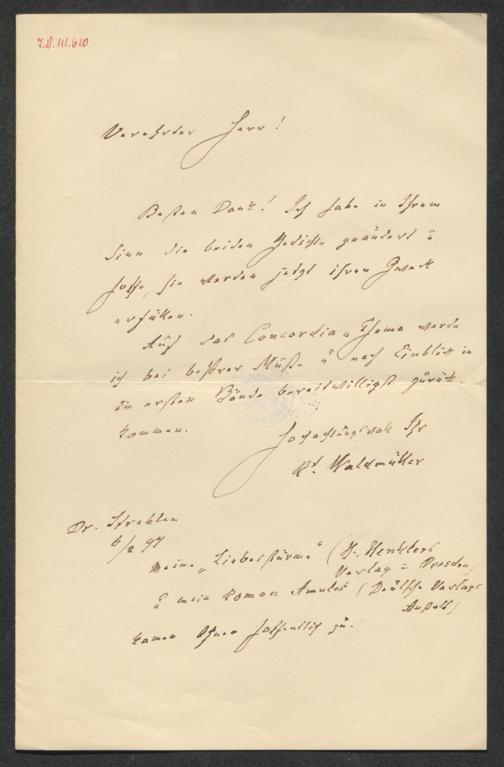 J.N. 111.610
Verehrter Herr!
Besten Dank! Ich habe in Ihrem
Sinn die beiden Gedichte geändert u
hoffe, sie werden jetzt ihren Zweck
erfüllen.
Auf das Concordia-Thema werde
ich bei beßrer Muße u nach Einblick in
die ersten Bände bereitwilligst zurück-
kommen.
Hochachtungsvoll Ihr
Rt. Waldmüller
Dr. Strehlen
6/2 97
Meine „Liebesstürme“ (H. Henklers
Verlag in Dresden)
u mein Roman (Deutsche Verlags
Anstalt)
kamen Ihnen hoffentlich zu.